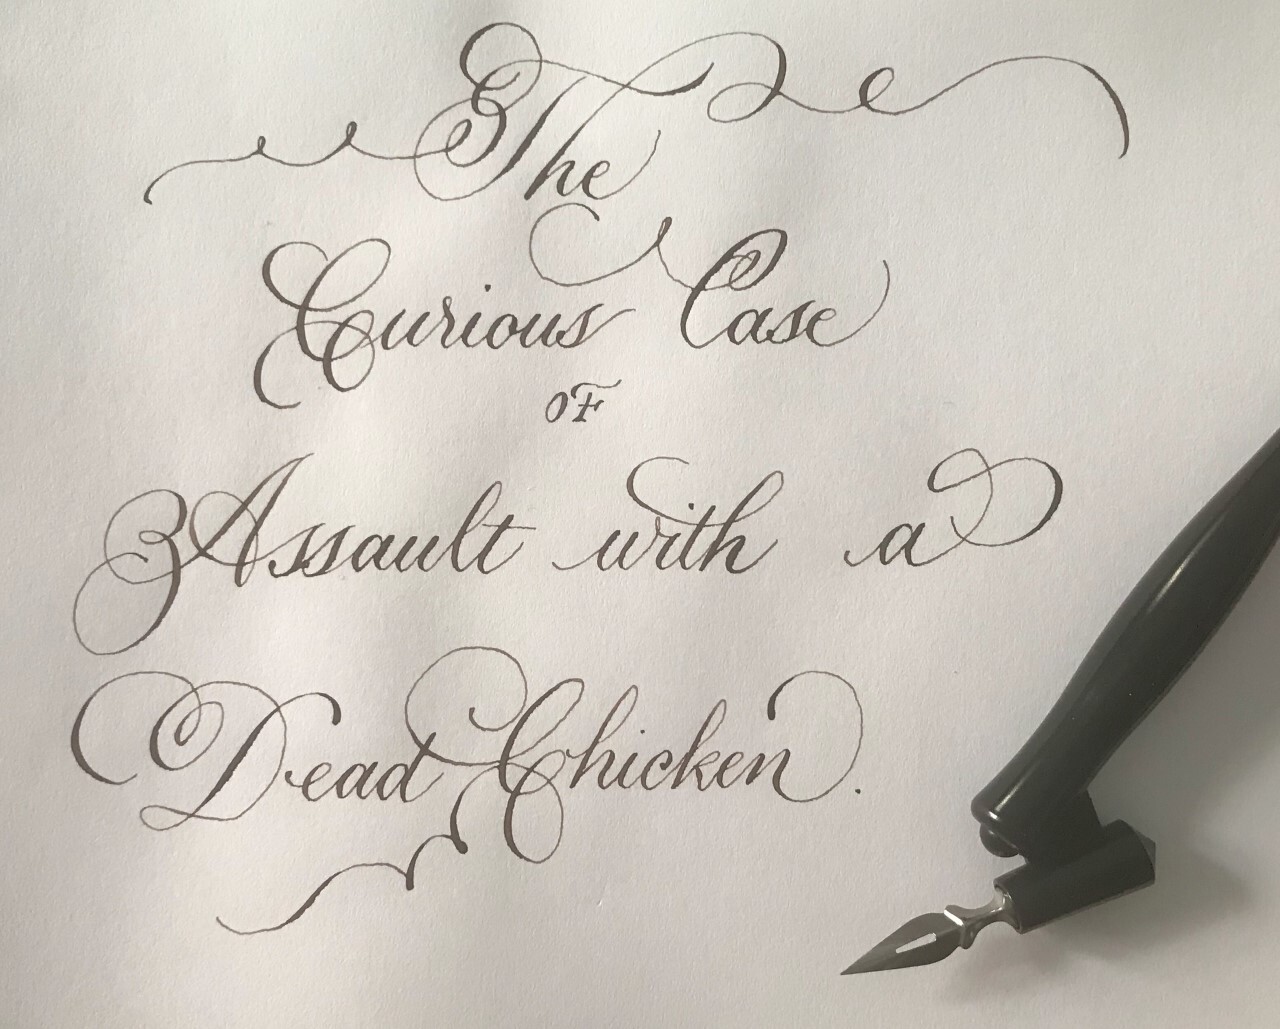 The
Curious Case
OF
Assault with a
Dead Chicken.